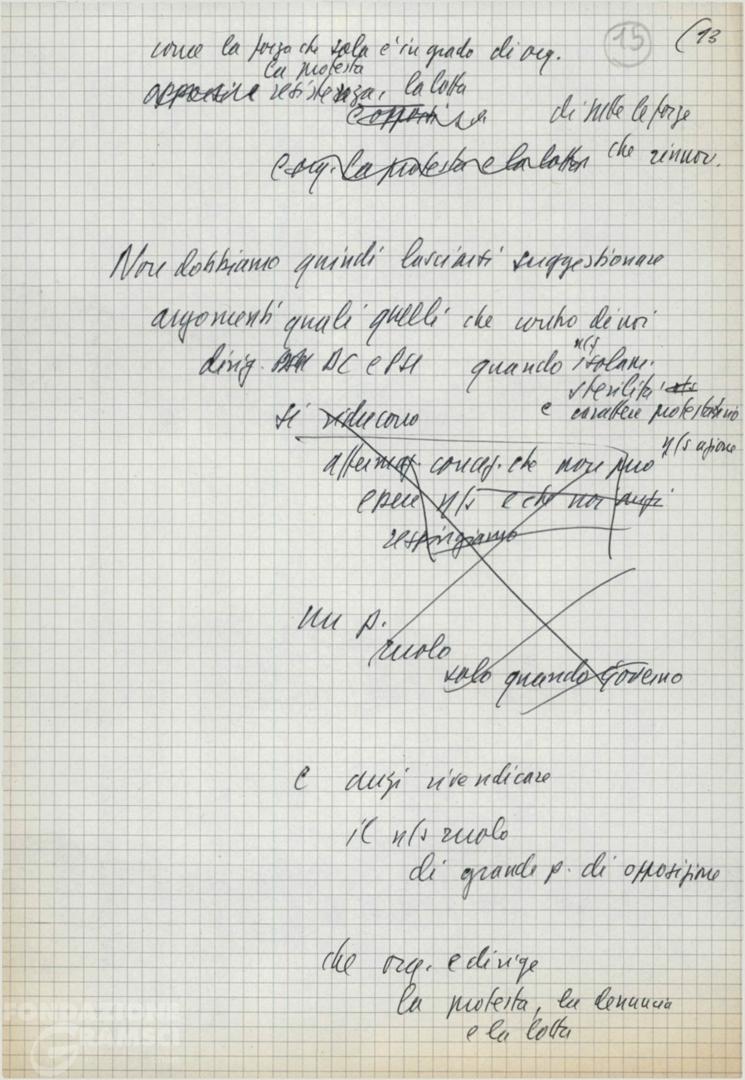 15 (13
come la forza che sola è in grado di org.
la protesta
opposizione resistenza, la lotta
e opposti di tutte le forze
e org. la protesta e la lotta che rinnov.
Non dobbiamo quindi lasciarci suggestionare
argomenti quali quelli che contro di noi
n/s
dirig. DC e PSI quando isolam.
sterilità
si riducono e carattere protestatario
n/s azione
affermaz. concez. che non può
essere n/s e che noi anzi
respingiamo
un p.
ruolo
solo quando Governo
e anzi rivendicare
il n/s ruolo
di grande p. di opposizione
che org. e dirige
la protesta, la denuncia
e la lotta
FONDAZIONE
GRAMSCI